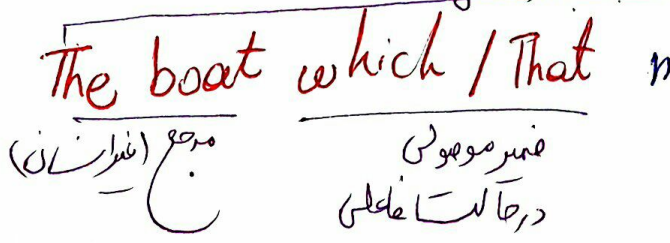 The boat which / That
مرجع (غیرانسان) ضمیر موصولی
در حالت فاعلی